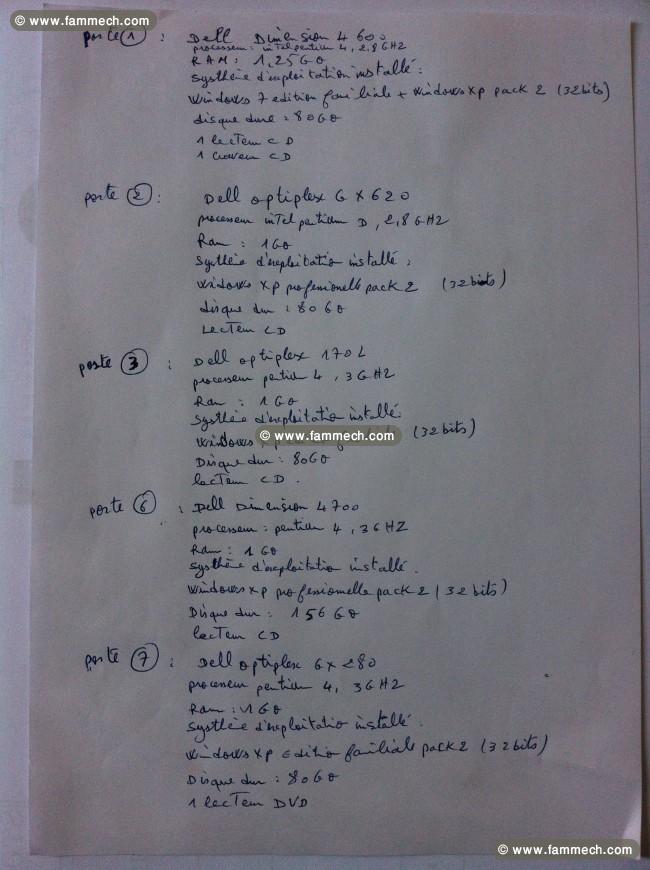 © www.fammech.com
© www.fammech.com
poste 1 : Dell Dimension 4600
processeur: intel pentium 4, 2,8 GHZ
RAM: 1,25GO
Système d'exploitation installé:
windows 7 edition familiale + windows xp pack 2 (32bits)
disque dure : 80GO
1 lecteur CD
1 graveur CD
poste 2 : Dell optiplex GX620
processeur intel pentium D, 2,8 GHZ
Ram : 1GO
Système d'exploitation installé :
windows xp professionelle pack 2 (32bits)
disque dur : 80 GO
Lecteur CD
poste 3 : Dell optiplex 170L
processeur pentium 4, 3GHZ
Ram : 1GO
Système d'exploitation installé:
windows (32bits)
© www.fammech.com
Disque dur : 80GO
lecteur CD.
poste 6 : Dell Dimension 4700
processeur : pentium 4, 3GHZ
Ram : 1GO
Système d'exploitation installé.
windows xp professionnelle pack 2 (32 bits)
Disque dur : 156 GO
lecteur CD
poste 7 : Dell optiplex GX280
processeur pentium 4, 3GHZ
Ram : 1GO
Système d'exploitation installé:
windows xp Edition familiale pack 2 (32bits)
Disque dur : 80GO
1 lecteur DVD
© www.fammech.com